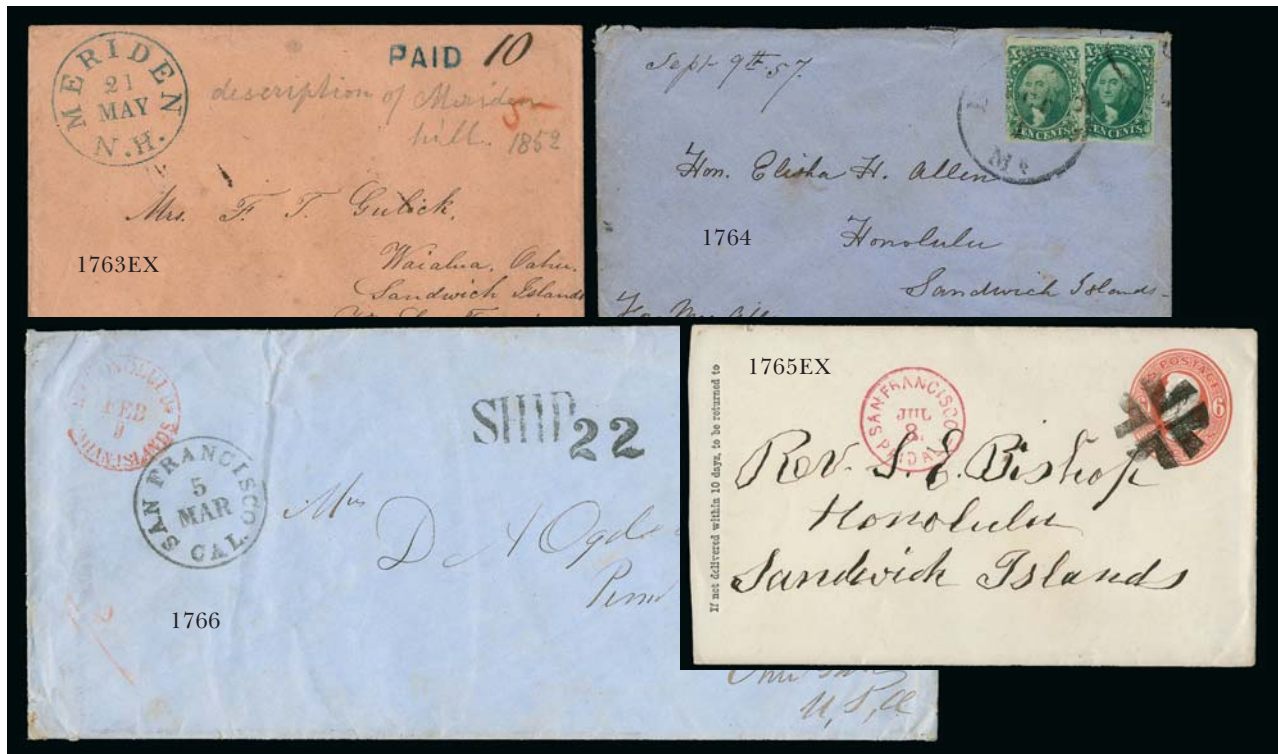 MERIDEN
21
MAY
N.H.
PAID 10
description of Meriden
hill. 1852
5
Mrs. F. T. Gulick,
Waialua, Oahu.
Sandwich Islands
1763EX
Sept 9th 57.
X X
TEN CENTS TEN CENTS
Hon. Elisha H. Allen
Honolulu
Sandwich Islands
1764
HONOLULU
FEB
ISLANDS
SAN FRANCISCO
5
MAR
CAL.
SHIP 22
Mrs
D A
U, S, A
1766
1765EX
If not delivered within 10 days, to be returned to
SAN FRANCISCO
JUL
8
PAID ALL
U.S. POSTAGE
6
Rev. S. E. Bishop
Honolulu
Sandwich Islands